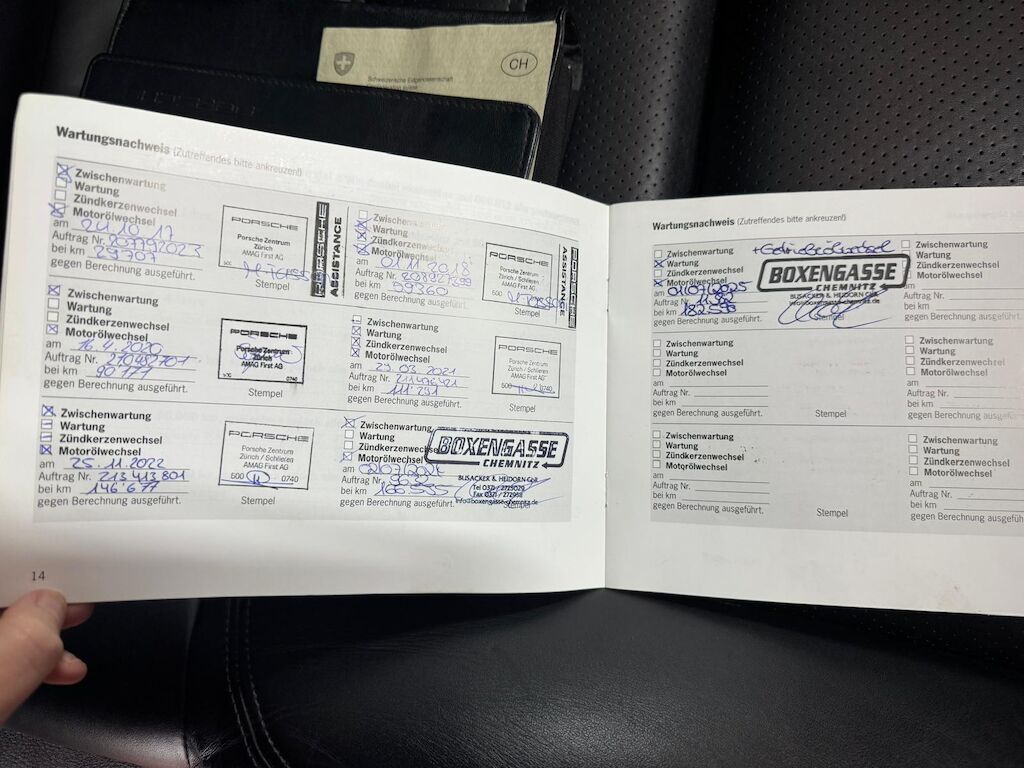 Schweizerische Eidgenossenschaft
CH
Wartungsnachweis (Zutreffendes bitte ankreuzen!)
Zwischenwartung
Wartung
Zündkerzenwechsel
Motorölwechsel
am 24.10.17
Auftrag Nr. 207792023
bei km 29707
gegen Berechnung ausgeführt.
PORSCHE
Porsche Zentrum
Zürich
AMAG First AG
Stempel
PORSCHE
ASSISTANCE
Zwischenwartung
Wartung
Zündkerzenwechsel
Motorölwechsel
am 01.11.2018
Auftrag Nr.
bei km 59360
gegen Berechnung ausgeführt.
PORSCHE
Porsche Zentrum
Zürich / Schlieren
AMAG First AG
500
Stempel
PORSCHE
ASSISTANCE
Zwischenwartung
Wartung
Zündkerzenwechsel
Motorölwechsel
am 16.4.2020
Auftrag Nr. 210487707
bei km 90'177
gegen Berechnung ausgeführt.
PORSCHE
Porsche Zentrum
Zürich
AMAG First AG
0740
Stempel
Zwischenwartung
Wartung
Zündkerzenwechsel
Motorölwechsel
am 29.03.2021
Auftrag Nr. 211496421
bei km 111'291
gegen Berechnung ausgeführt.
PORSCHE
Porsche Zentrum
Zürich / Schlieren
AMAG First AG
500 0740
Stempel
Zwischenwartung
Wartung
Zündkerzenwechsel
Motorölwechsel
am 25.11.2022
Auftrag Nr. 213413801
bei km 146'677
gegen Berechnung ausgeführt.
PORSCHE
Porsche Zentrum
Zürich / Schlieren
AMAG First AG
500 0740
Stempel
Zwischenwartung
Wartung
Zündkerzenwechsel
Motorölwechsel
am 02/07/2024
Auftrag Nr. 9632
bei km 166.535
gegen Berechnung ausgeführt.
BOXENGASSE
CHEMNITZ
BUSACKER & HEIDORN GbR
Tel 0371 / 2725029
Fax 0371 / 272958
info@boxengasse-chemnitz.de
Stempel
14
Wartungsnachweis (Zutreffendes bitte ankreuzen!)
+Getriebeölwechsel
Zwischenwartung
Wartung
Zündkerzenwechsel
Motorölwechsel
am 01/07/2025
Auftrag Nr. 1182
bei km 182.595
gegen Berechnung ausgeführt.
BOXENGASSE
CHEMNITZ
BUSACKER & HEIDORN GbR
info@boxengasse-chemnitz.de
Zwischenwartung
Wartung
Zündkerzenwechsel
Motorölwechsel
am
Auftrag Nr.
bei km
gegen Berechnung ausgeführt
Zwischenwartung
Wartung
Zündkerzenwechsel
Motorölwechsel
am
Auftrag Nr.
bei km
gegen Berechnung ausgeführt.
Stempel
Zwischenwartung
Wartung
Zündkerzenwechsel
Motorölwechsel
am
Auftrag Nr.
bei km
gegen Berechnung ausgeführt
Zwischenwartung
Wartung
Zündkerzenwechsel
Motorölwechsel
am
Auftrag Nr.
bei km
gegen Berechnung ausgeführt.
Stempel
Zwischenwartung
Wartung
Zündkerzenwechsel
Motorölwechsel
am
Auftrag Nr.
bei km
gegen Berechnung ausgeführt